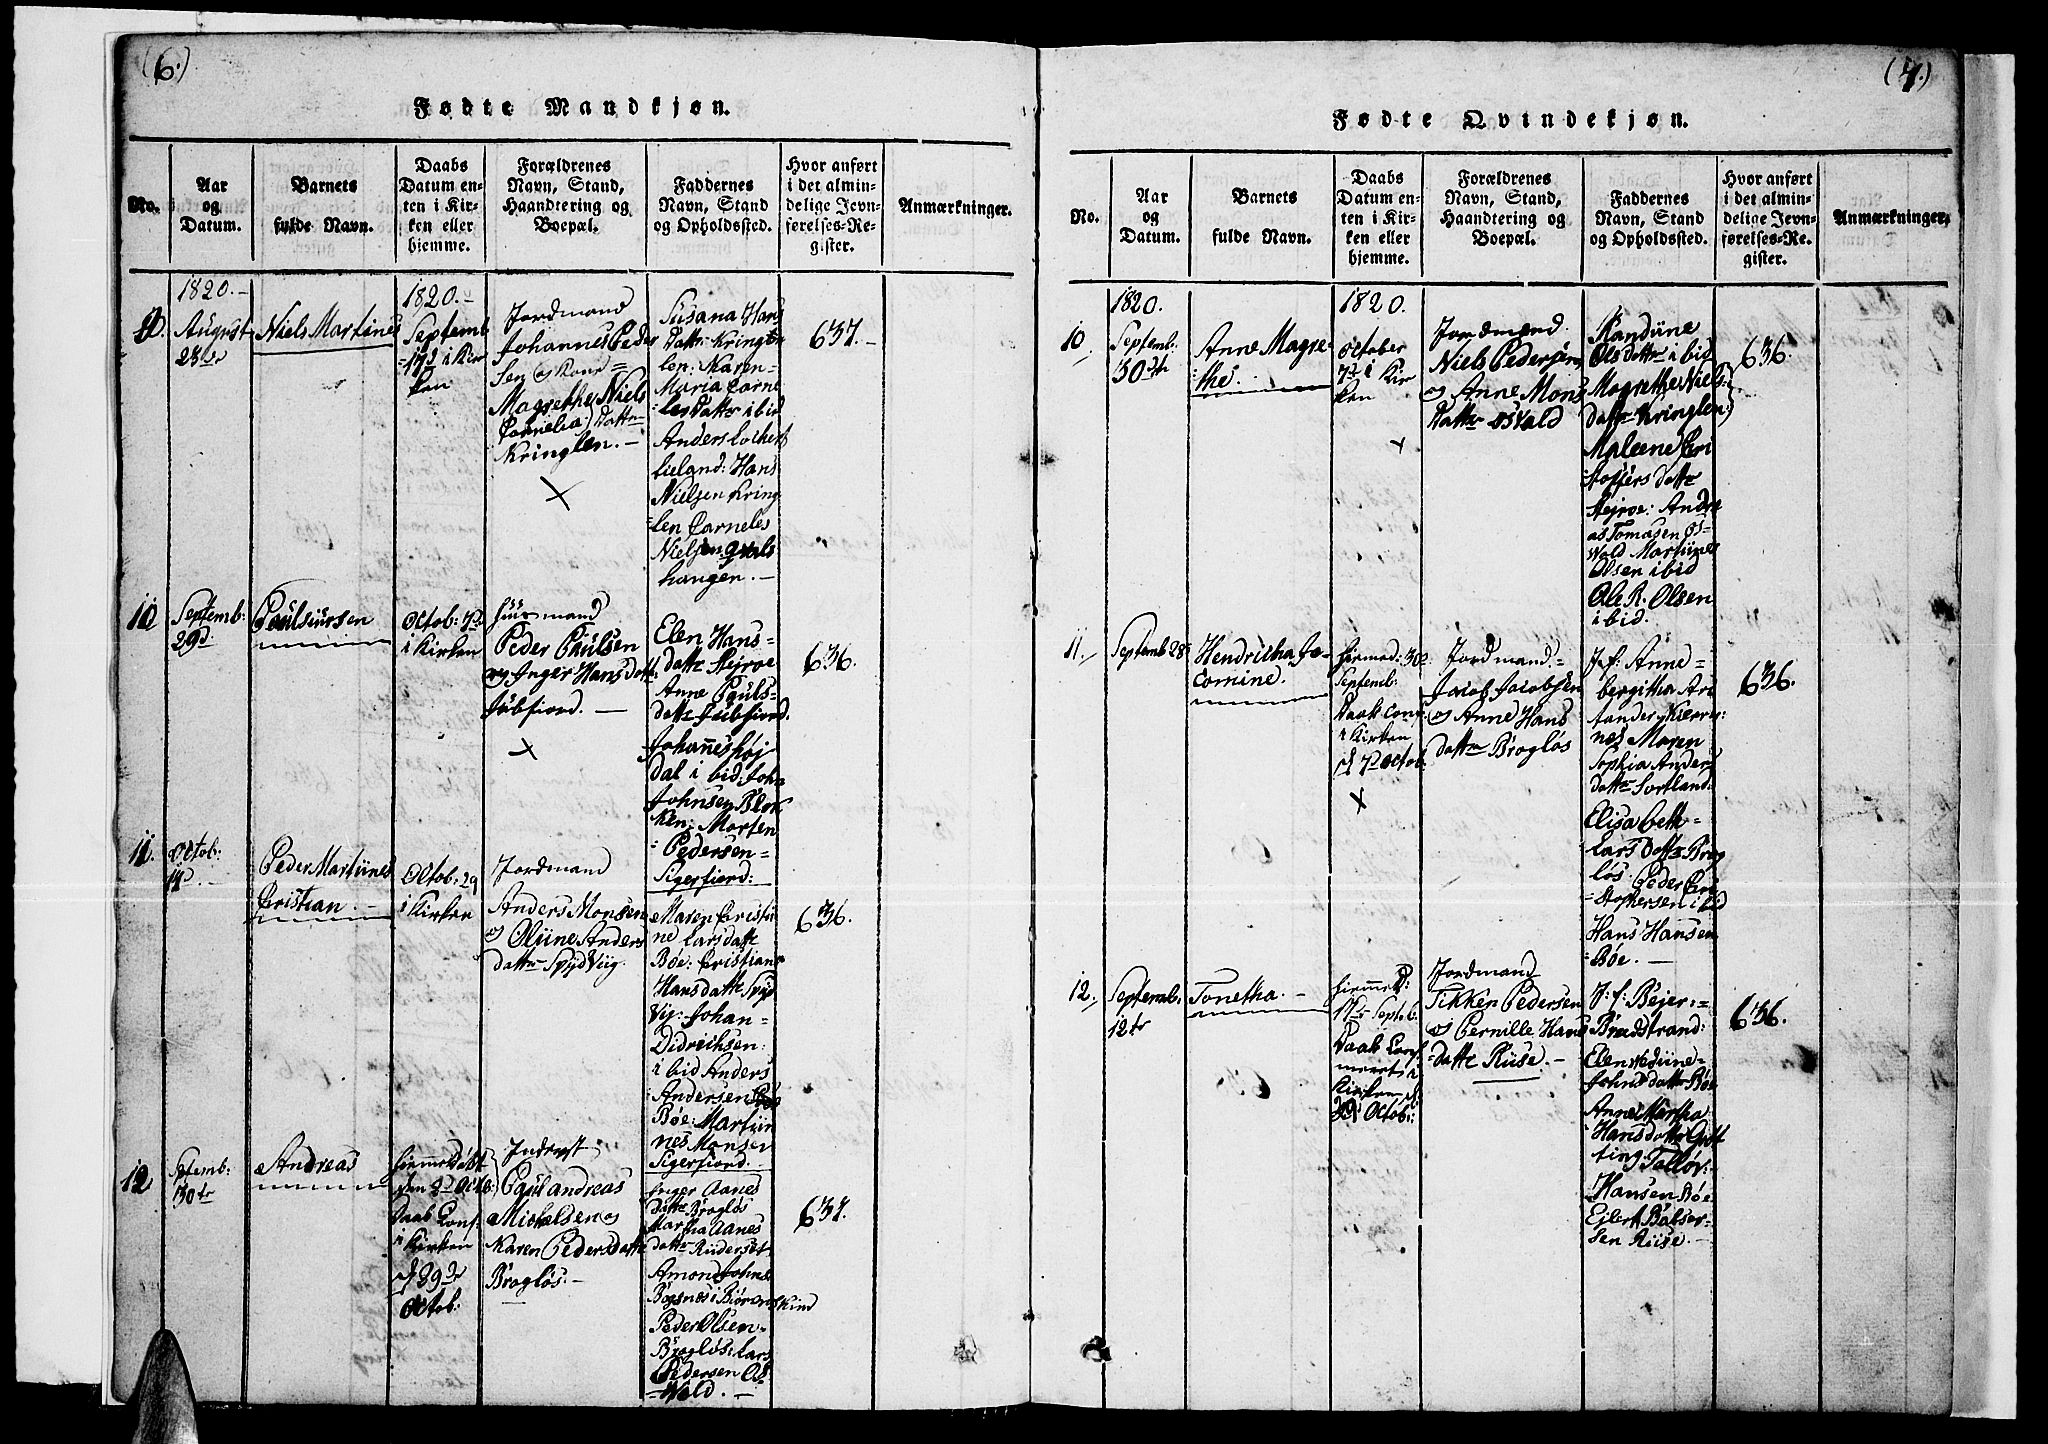 (6.)
Fødte Mandkjøn.
No.
Aar
og
Datum.
Barnets
fulde Navn.
Daabs
Datum en-
ten i Kir-
ken eller
hjemme.
Forældrenes
Navn, Stand,
Haandtering og
Boepæl.
Faddernes
Navn, Stand
og Opholdssted.
Hvor anført
i det almin-
delige Jevn-
førelses-Re-
gister.
Anmærkninger.
1820.-
August
23de
Niels Martines
1820.-
Septemb
17d i Kir
ken
Jordmand
Johannes Peder
Sen og Kone =
Magrethe Niels
Cornelia) Datter
Kringlen. -
Susana Hans
Datter Kring
len: Maren-
Maria Corne
les Datter ibid
Anders Lockert
Lieland: Hans
Nielsen Kring
len Corneles
Nielsen Qvals
haugen. -
637.-
10
Septemb:
29d
Poulsiursen
Octob: 7de
i Kirken
Huusmand
Peder Poulsen
og Inger Hans datt
Jubfiord. -
Elen Hans-
datte Stejroe
Anne Pouls-
datte Jubfiord.
Johannes Høj
dal i bid: John
Johnsen Blok
ken: Morten
Pedersen=
Sigerfiord:
636.
11.
Octob:
Peder Martiines
Cristian. -
Octob: 29
i Kirken
Jordmand
Anders Monsen
og Oliine Anders
datter Spydviig.
Maren Cristi
ne Larsdatte
Bøe: Cristiane
Hansdatte Spyd
Vig: Johan=
Didrichsen:
i bid Anders
Andersen
Bøe: Martii
nes Monsen
Sigerfiord.
636.
12
Septemb:
30te
Andreas
hiemmedøbt
den 8d Octb:
Daab Conf.
i Kirken
d 29de
Octob:
Inderst
Poul andreas
Michelsen og
Karen Peders datte
Brogløs. -
Inger Aanes
Datte Brogløs
Martha Aanes
datter Rinderset
Amond Johns:
Bogsnes i Biørenskind
Peder Olsen-
Brogløs: Lars
Pedersen Os-
Wold. -
637.
(7.)
Fødte Qvindekjøn.
No.
Aar
og
Datum.
Barnets
fulde Navn.
Daabs
Datum en-
ten i Kir-
ken eller
hjemme.
Forældrenes
Navn, Stand,
Haandtering og
Boepæl.
Faddernes
Navn, Stand
og Opholdssted.
Hvor anført
i det almin-
delige Jevn-
førelses-Re-
gister.
Anmærkninger.
10
1820.
Septemb.
30te
Anne Magre
the.
1820.
October
7d i
Kir
ken
Jordmand.
Niels Pedersen
og Anne Mons
Datter osvald
Randiine
Olsdatter i bid
Magrethe Niels
datte Kringlen
Maleene Cri
stoffers datte
Stejroe: Andre
as Tomasen Os-
Wold Martiines
Olsen ibid
Ole R. Olsen
i bid.
636.
11.
Septemb 28
Hendricha Ja-
comine.
hiemed: 30
Septemb:
Daab Conf:
i Kirken
d 7d Octob.
Jordmand.-
Jacob Jacobsen
og Anne Hans
datter Brogløs
J.f: Anne=
bergitha Ari
tander Kierrin:
nes Maren
Sophia Anders
datte Sortland:
Elisabeth-
Lars Datte Brog
løs. Peder Cri
Stophersen i bid
Hans Hansen
Bøe. -
636.
12.
Septemb.
12te
Tonetha. -
hiemmed:
17de Septob.
Daab Conf.
meert i
Kirken d
29 Octob:
Jordmand
Tikken Pedersen
og Pernille Hans
datte Riise. -
J: f: Bejer:=
Bredstrand:
Elen Mediine=
Johns datte Bøe
Anne Martha
Hansdatte Gut
ting Tolløv:
Hansen Bøe
Ejlert Balser-
sen Riise. -
636.